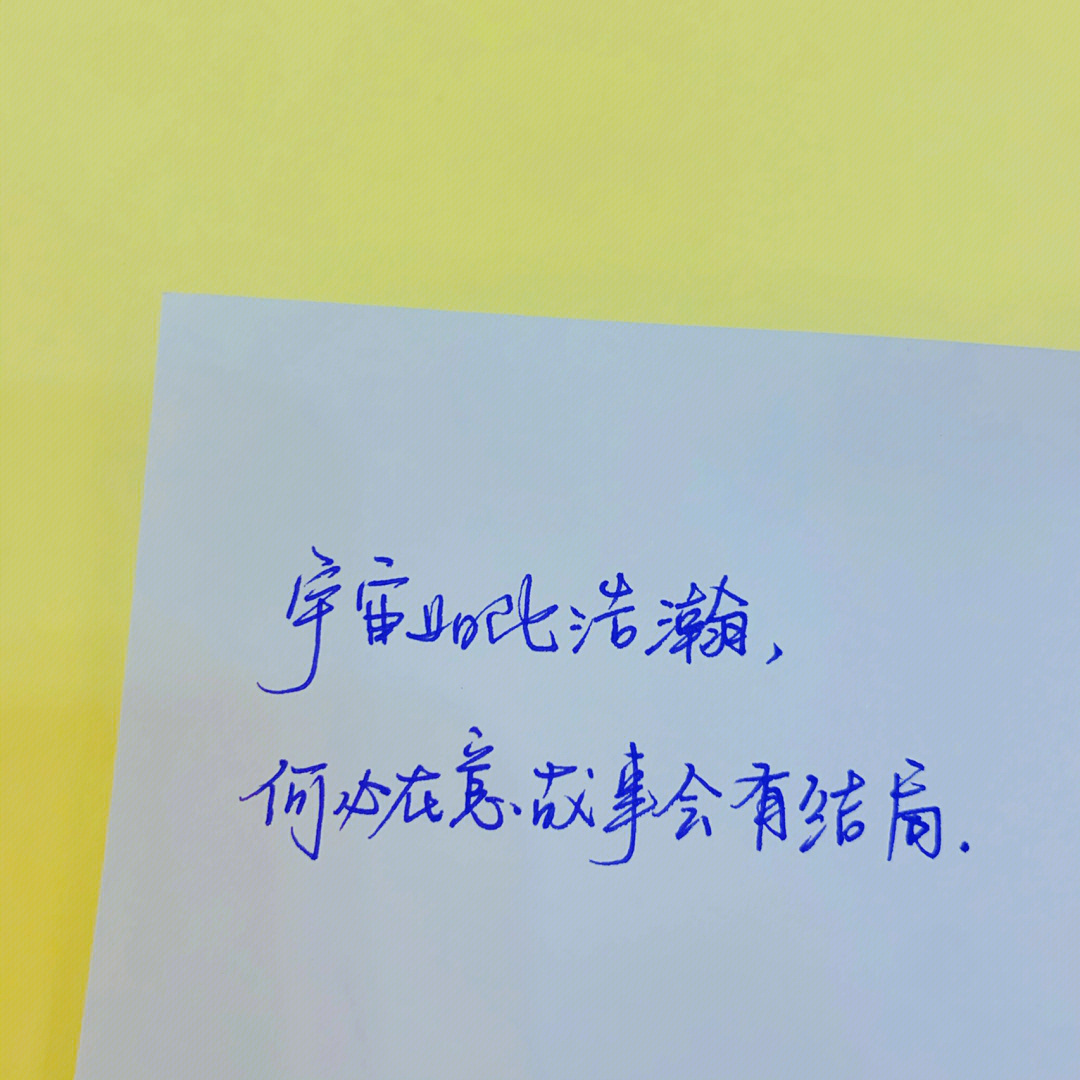 宇宙如此浩瀚,
何必在意故事会有结局.